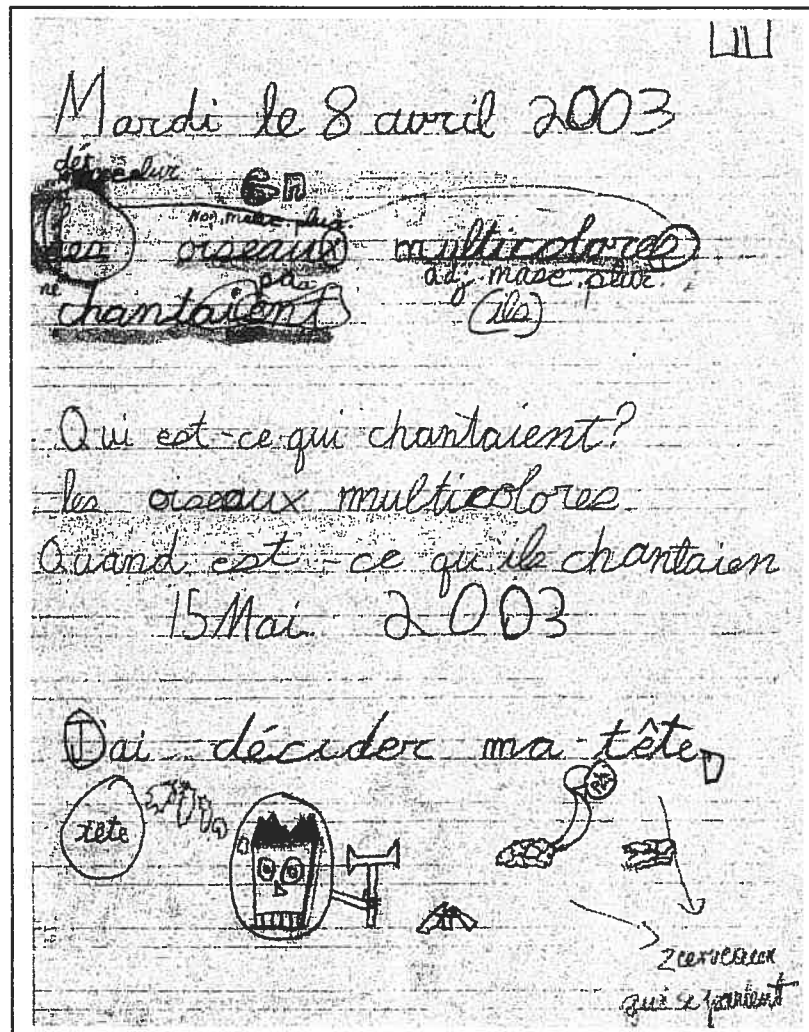 Mardi le 8 avril 2003
dét masc plur
En
Nom masc. plur.
les oiseaux multicolores
ne pas adj. masc. plur.
chantaient (ils)
Qui est-ce qui chantaient?
les oiseaux multicolores
Quand est-ce qu'ils chantaien
15 Mai 2003
J'ai décider ma tête
tête
2 cerveaux
qui se parlent